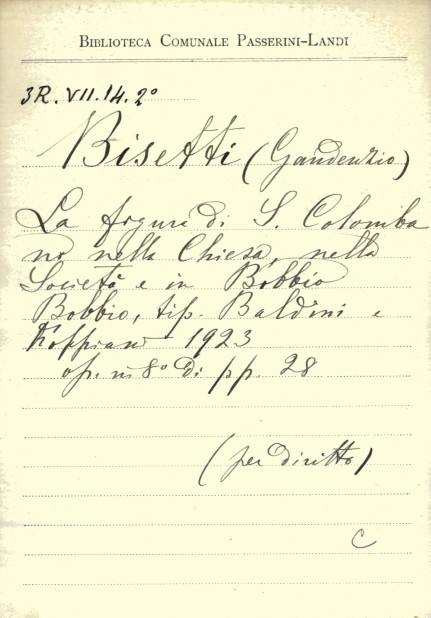 BIBLIOTECA COMUNALE PASSERINI-LANDI
3R. VII. 14. 2°
Bisetti (Gaudenzio)
La figura di S. Colomba
no nella Chiesa, nella
Società e in Bobbio
Bobbio, tip. Baldini e
1923
op. in 8° di pp. 28
(per diritto)
C